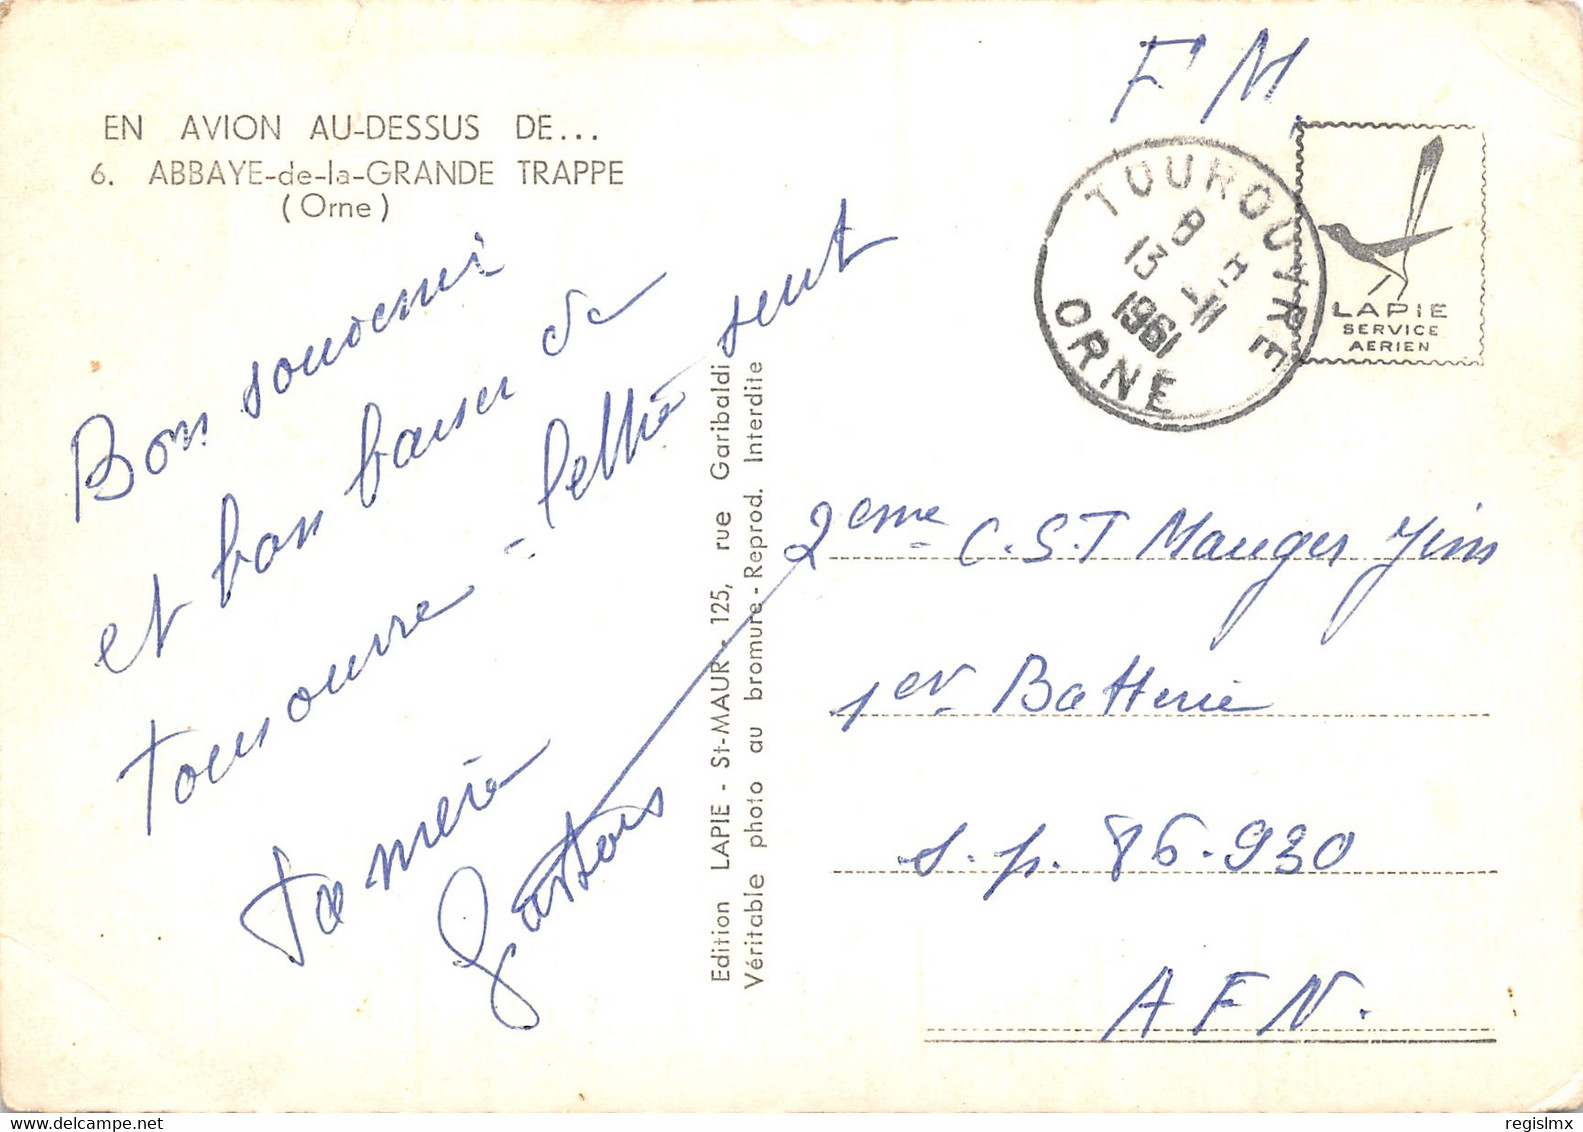 EN AVION AU-DESSUS DE...
6. ABBAYE-de-la-GRANDE TRAPPE
(Orne)
Bon souvenir
et bon baiser de
Tourouvre - lettre suit
Ta mère
Edition LAPIE - St-MAUR - 125, rue Garibaldi
Véritable photo au bromure - Reprod. Interdite
F M
TOUROUVRE
8 H
13 -11
1961
ORNE
LAPIE
SERVICE
AERIEN
2eme C.S.T Mauger Jim
1er Batterie
S.p. 86.930
A F N.
delcampe.net
regislmx